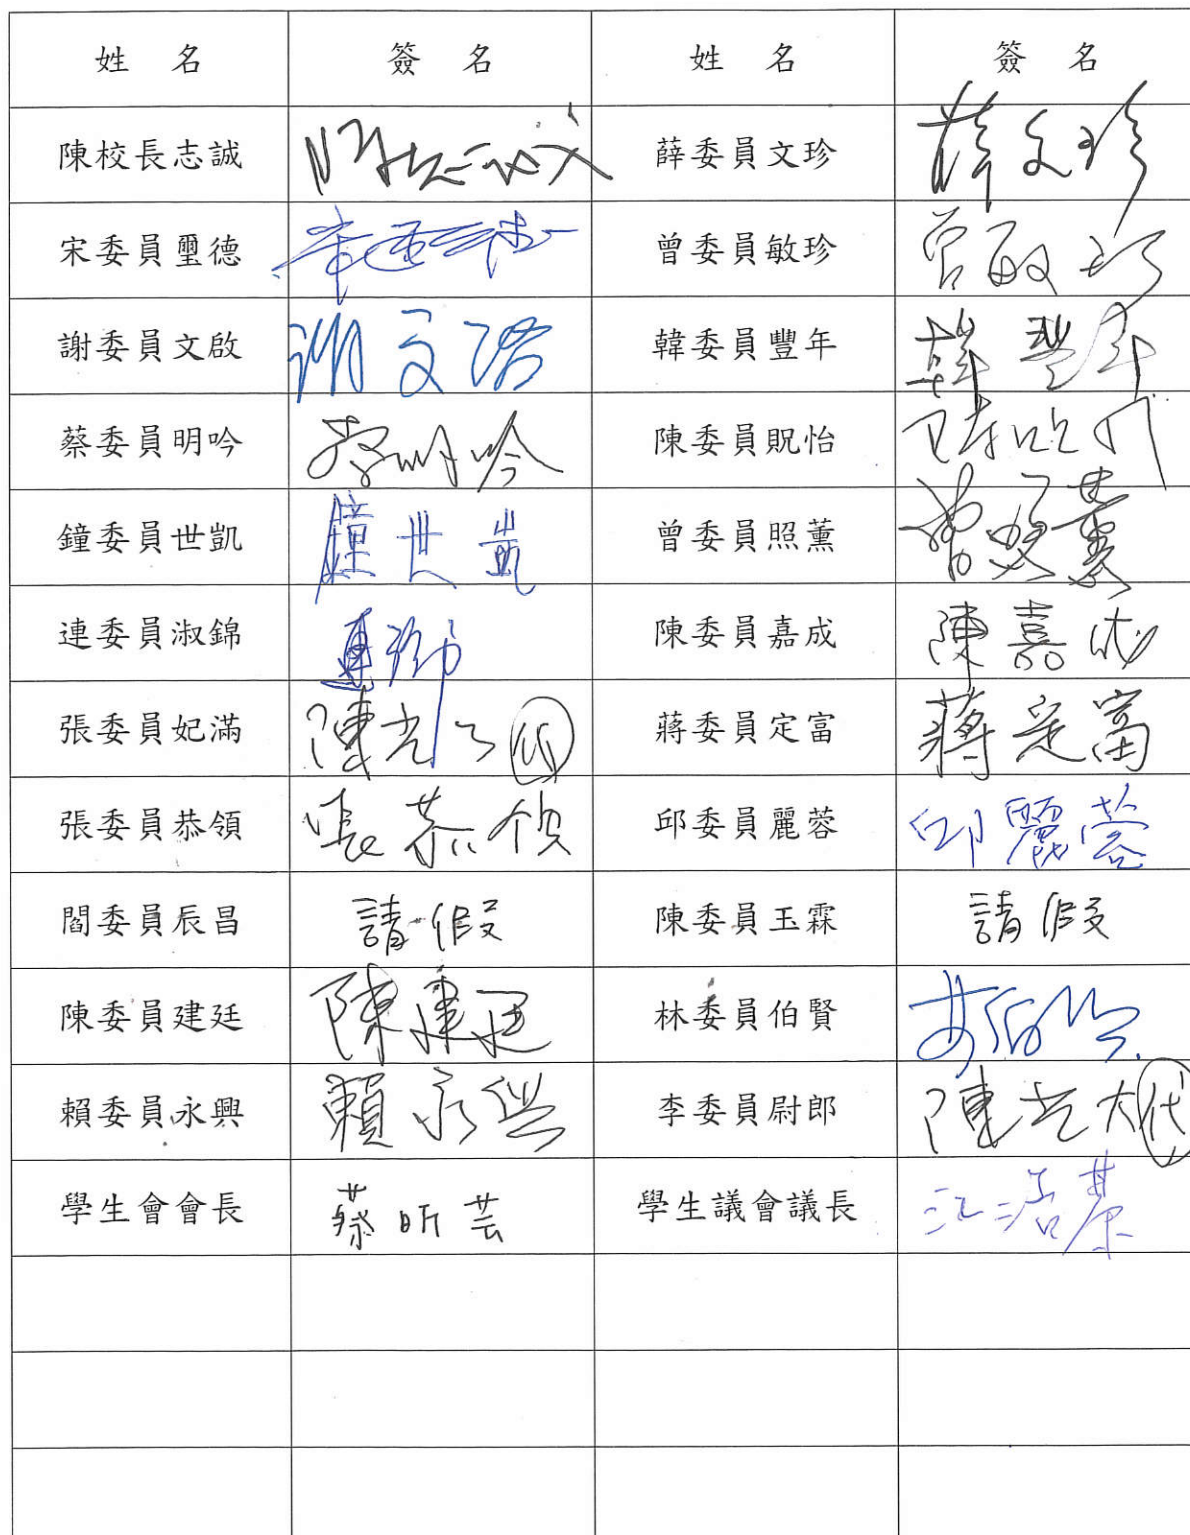 姓名 簽名 姓名 簽名
陳校長志誠 陳志誠 薛委員文珍 薛文珍
宋委員璽德 宋璽德 曾委員敏珍 曾敏珍
謝委員文啟 謝文啟 韓委員豐年 韓豐年
蔡委員明吟 蔡明吟 陳委員貺怡 陳貺怡
鐘委員世凱 鐘世凱 曾委員照薰 曾照薰
連委員淑錦 連淑錦 陳委員嘉成 陳嘉成
張委員妃滿 陳光 代 蔣委員定富 蔣定富
張委員恭領 張恭領 邱委員麗蓉 邱麗蓉
閻委員辰昌 請假 陳委員玉霖 請假
陳委員建廷 陳建廷 林委員伯賢 林伯賢
賴委員永興 賴永興 李委員尉郎 陳光大 代
學生會會長 蔡昕芸 學生議會議長 江浩綦